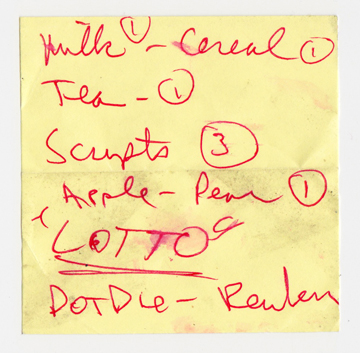 Milk ① - Cereal ①
Tea - ①
Scripts ③
Apple - Pear ①
"LOTTO"
DOTDIE -